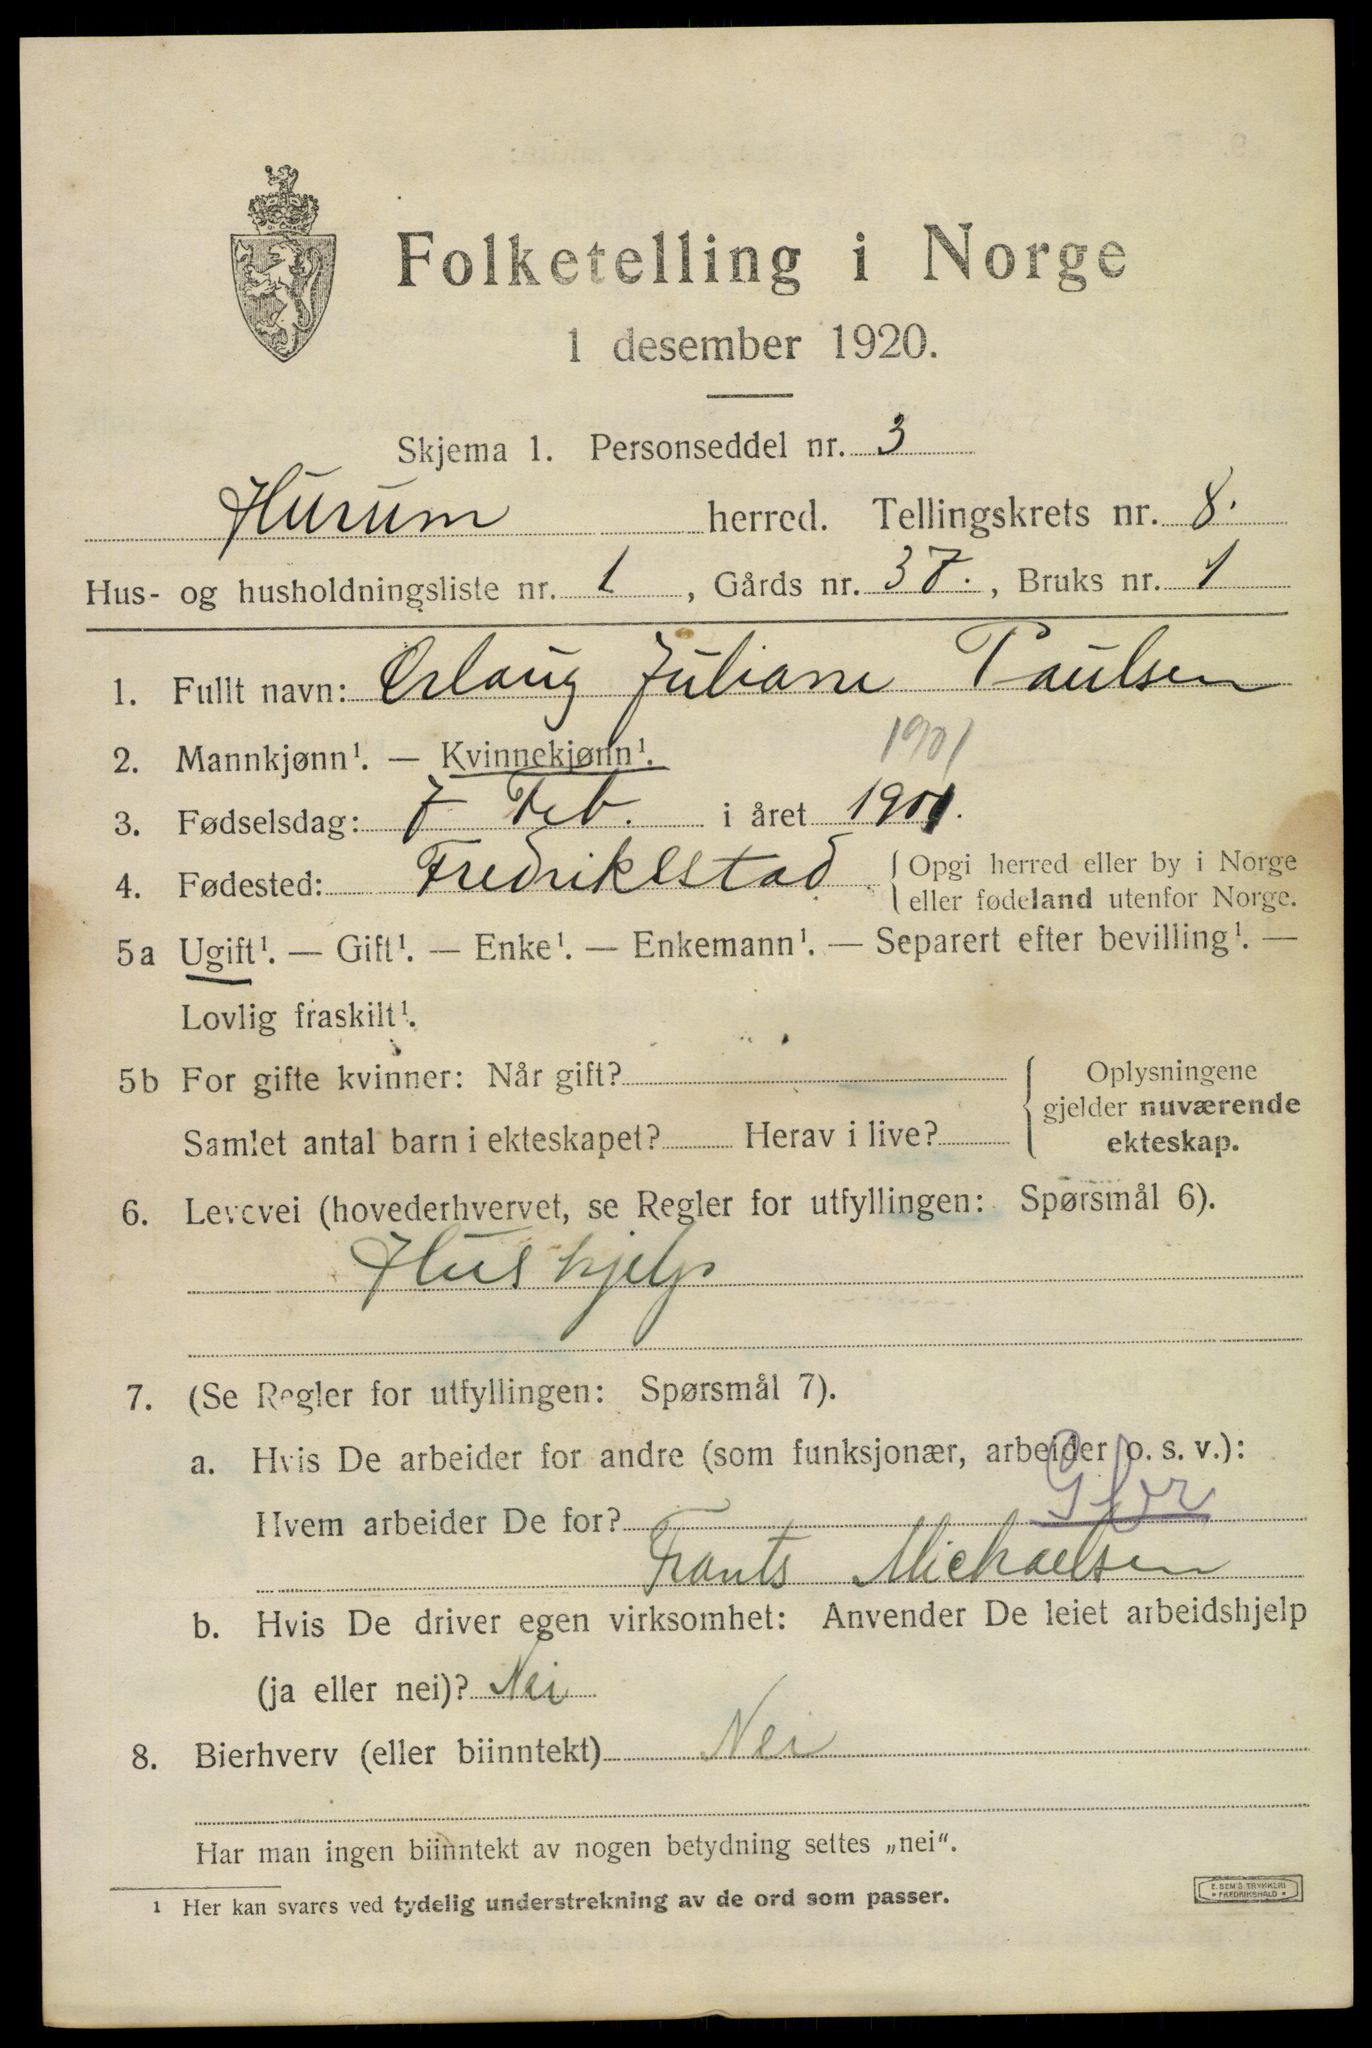 Folketelling i Norge
1 desember 1920.
Skjema 1. Personseddel nr. 3
Hurum herred. Tellingskrets nr. 8.
Hus- og husholdningsliste nr. 1, Gårds nr. 37., Bruks nr. 1
1. Fullt navn:Ørlaug Juliane Paulsen
2. Mannkjønn¹. — Kvinnekjønn¹. 1901
3. Fødselsdag: 7 Feb. i året 1901.
4. Fødested: Fredrikstad {Opgi herred eller by i Norge
eller fødeland utenfor Norge.
5a Ugift¹. — Gift¹. — Enke¹. — Enkemann¹. — Separert efter bevilling¹. —
Lovlig fraskilt¹.
5b For gifte kvinner: Når gift?
Samlet antal barn i ekteskapet? Herav i live?
{Oplysningene
gjelder nuværende
ekteskap.
6. Levevei (hovederhvervet, se Regler for utfyllingen: Spørsmål 6).
Hushjelp
7. (Se Regler for utfyllingen: Spørsmål 7).
a. Hvis De arbeider for andre (som funksjonær, arbeider o. s. v.):
Hvem arbeider De for?
Frants Michaelsen
b. Hvis De driver egen virksomhet: Anvender De leiet arbeidshjelp
(ja eller nei)? Nei
8. Bierhverv (eller biinntekt) Nei
Har man ingen biinntekt av nogen betydning settes „nei“.
¹ Her kan svares ved tydelig understrekning av de ord som passer.
E. SEM'S TRYKKERI
FREDRIKSHALD